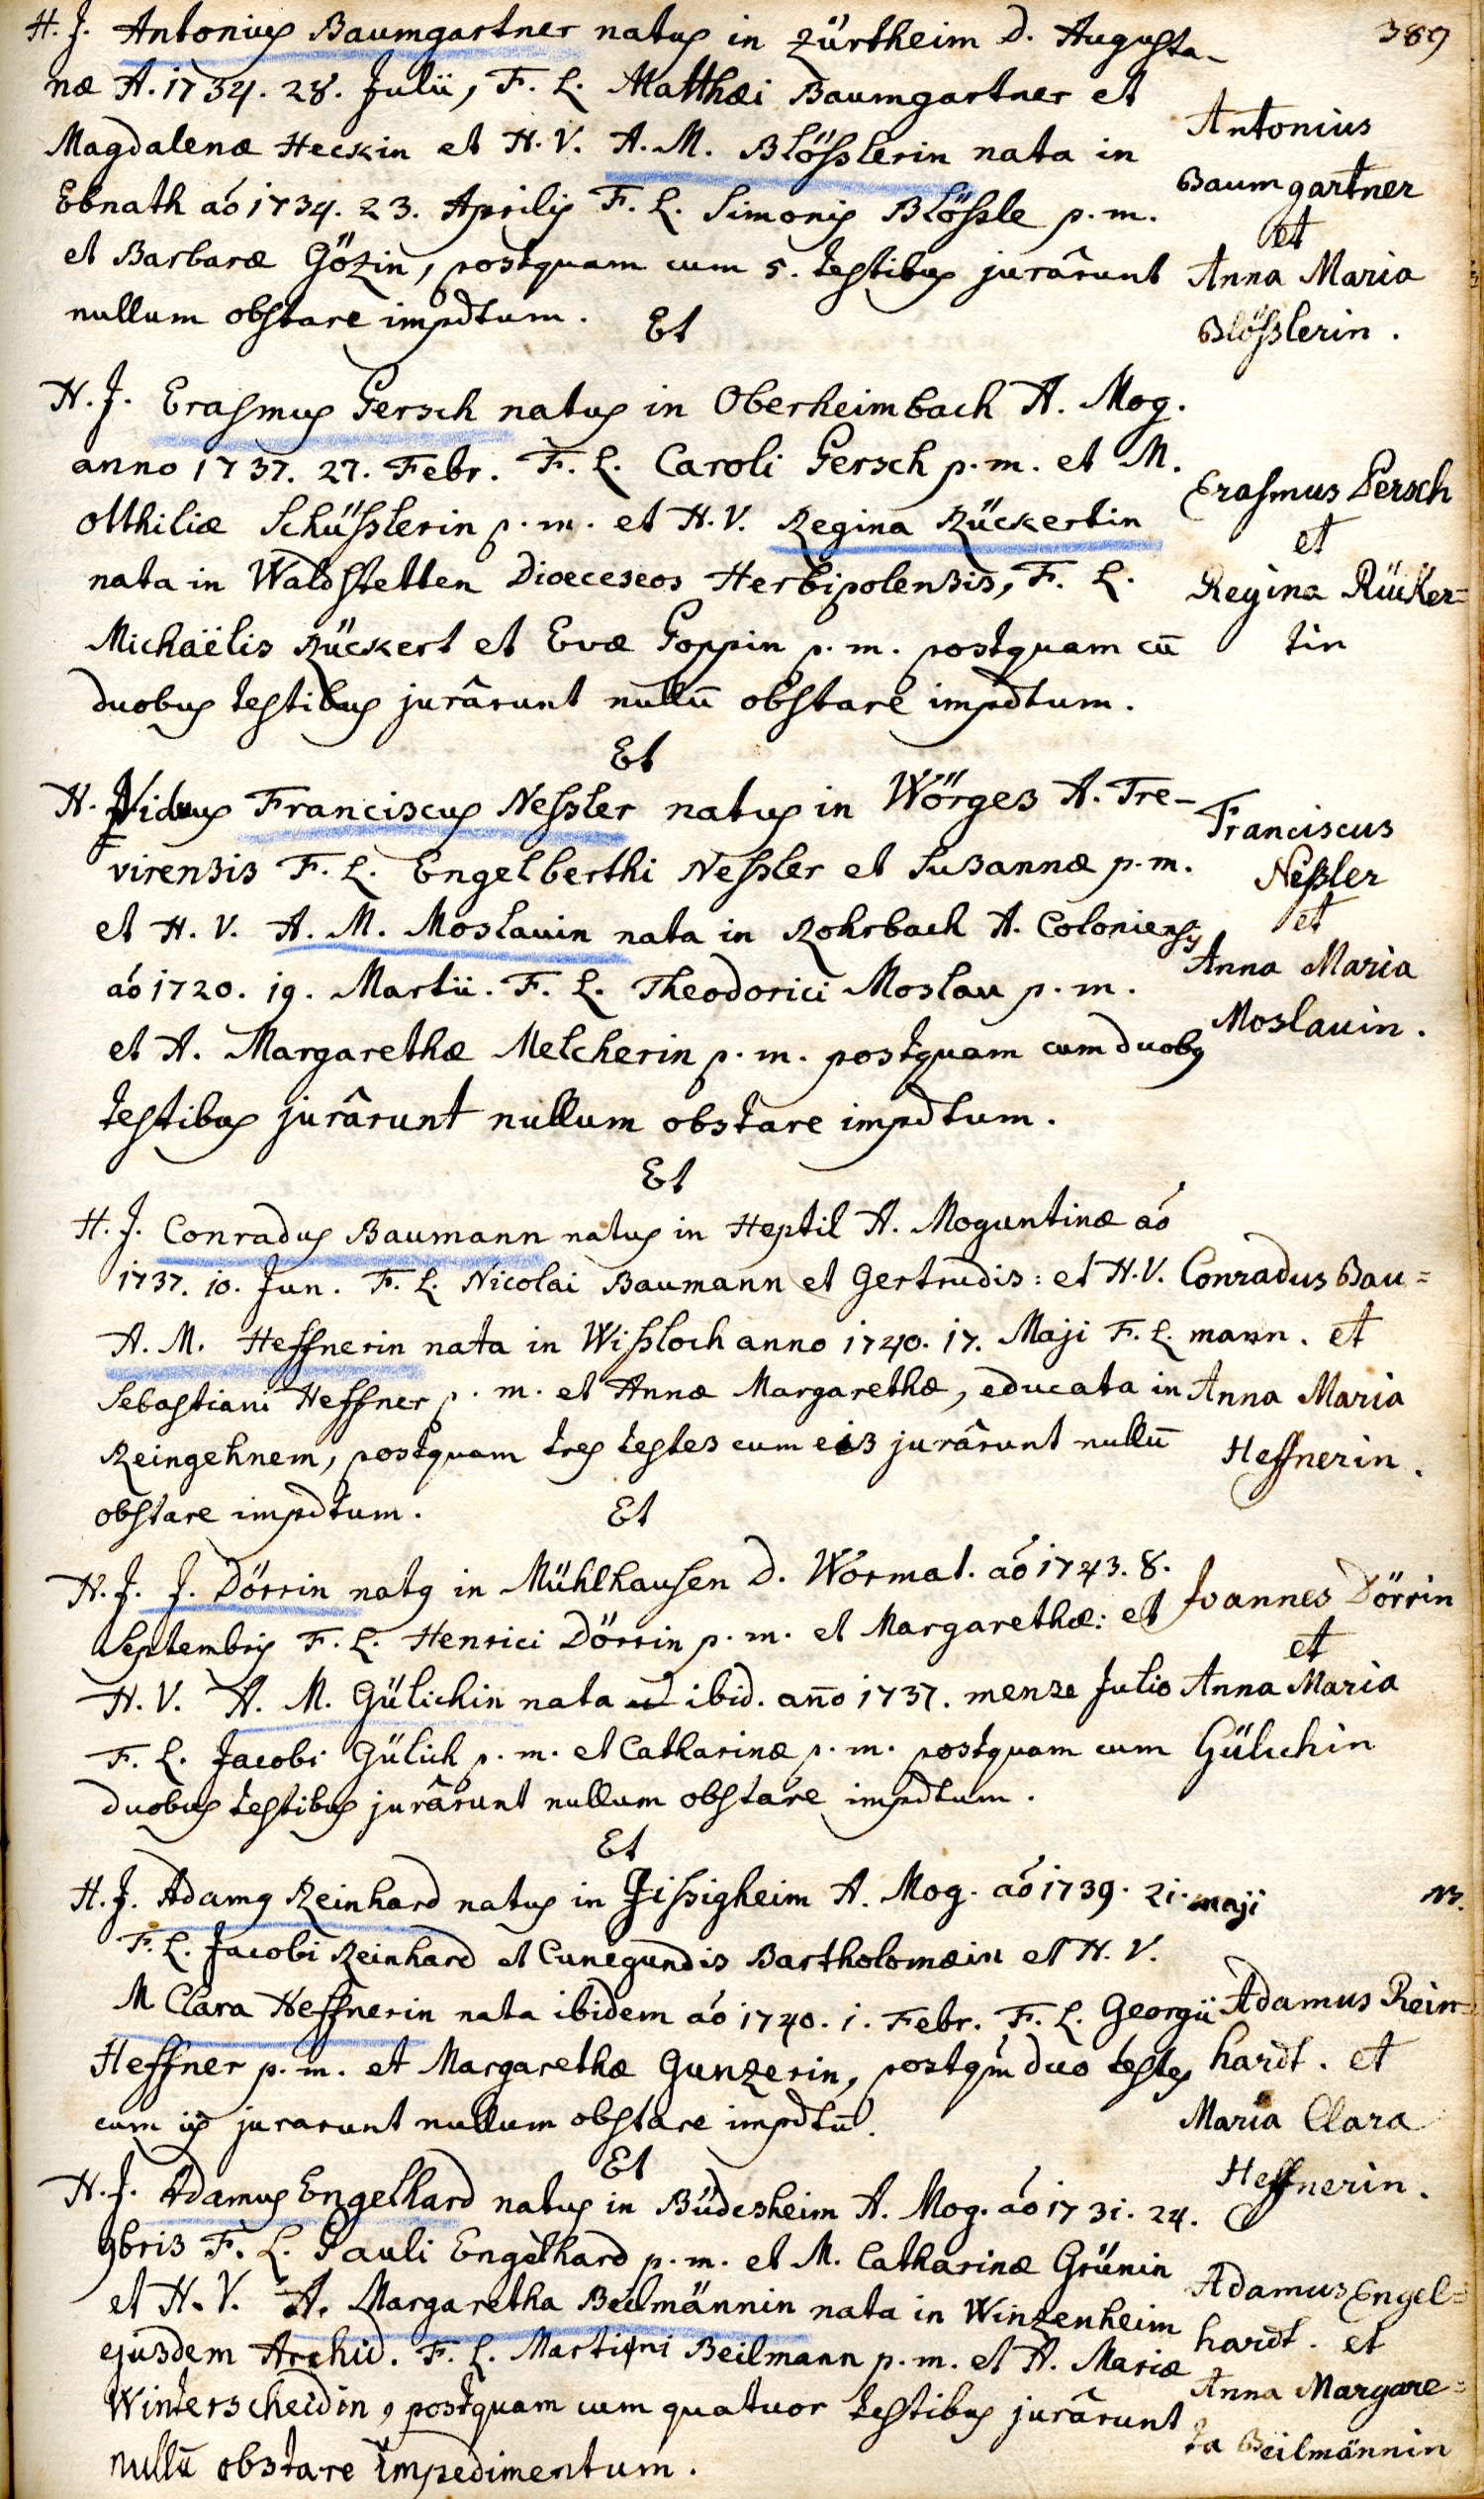 389
H. J. Antonius Baumgartner natus in Zürtheim D. Augusta-
næ A. 1734. 28. Julii, F. L. Matthæi Baumgartner et
Magdalenæ Heckin et H. V. A. M. Blößlerin nata in
Ebnath aó 1734. 23. Aprilis F. L. Simonis Blößle p. m.
et Barbaræ Gözin, postquam cum 5. testibus jurârunt
nullum obstare impdtum.
Et
Antonius
Baumgartner
et
Anna Maria
Blößlerin.
H. J. Erasmus Gersch natus in Oberheimbach A. Mog.
anno 1737. 27. Febr. F. L. Caroli Gersch p. m. et M.
Otthiliæ Schüßlerin p. m. et H. V. Regina Rückertin
nata in Waldstetten Dioeceseos Herbipolensis, F. L.
Michaëlis Rückert et Evæ Goppin p. m. postquam cū
duobus testibus jurârunt nullū obstare impdtum.
Et
Erasmus Gersch
et
Regina Rücker=
tin
H. Viduus Franciscus Neßler natus in Wörges A. Tre-
virensis F. L. Engelberthi Neßler et Susannæ p. m.
et H. V. A. M. Moslauin nata in Rohrbach A. Coloniensis
aó 1720. 19. Martii. F. L. Theodorici Moslau p. m.
et A. Margarethæ Melcherin p. m. postquam cum duobus
testibus jurârunt nullum obstare impdtum.
Et
Franciscus
Neßler
et
Anna Maria
Moslauin.
H. J. Conradus Baumann natus in Heptil A. Moguntinæ aó
1737. 10. Jun. F. L. Nicolai Baumann et Gertrudis: et H. V.
A. M. Heffnerin nata in Wißloch anno 1740. 17. Maji F. L.
Sebastiani Heffner p. m. et Annæ Margarethæ, educata in
Reingehnem, postquam tres testes cum eis jurârunt nullū
obstare impdtum.
Et
Conradus Bau=
mann. et
Anna Maria
Heffnerin.
H. J. J. Dörrin natus in Mühlhausen D. Wormat. aó 1743. 8.
Septembris F. L. Henrici Dörrin p. m. et Margarethæ: et
H. V. A. M. Gülichin nata ibid. año 1737. mense Julio
F. L. Jacobi Gülich p. m. et Catharinæ p. m. postquam cum
duobus testibus jurârunt nullum obstare impdtum.
Et
Joannes Dörrin
et
Anna Maria
Gülichin
H. J. Adamus Reinhard natus in Gißigheim A. Mog. aó 1739. 21. maji
F. L. Jacobi Reinhard et Cunegundis Bartholomæin et H. V.
M Clara Heffnerin nata ibidem aó 1740. 1. Febr. F. L. Georgii
Heffner p. m. et Margarethæ Gunzerin, postqm duo testes
cum iis jurarunt nullum obstare impdtū.
Et
Adamus Rein=
hardt. et
Maria Clara
Heffnerin.
H. J. Adamus Engelhard natus in Büdesheim A. Mog. aó 1731. 24.
9bris F. L. Pauli Engelhard p. m. et M. Catharinæ Grünin
et H. V. A. Margaretha Beilmännin nata in Winzenheim
ejusdem Archid. F. L. Martini Beilmann p. m. et A. Mariæ
Winterscheidin, postquam cum quatuor testibus jurârunt
nullū obstare impedimentum.
Adamus Engel=
hardt. et
Anna Margare=
ta Beilmännin